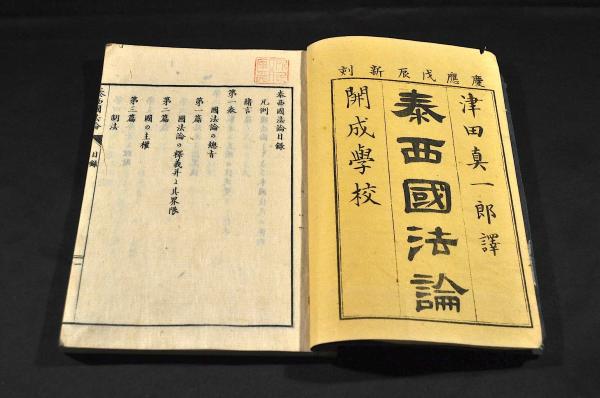 慶應戊辰新刻
津田真一郎譯
泰西國法論
開成學校
泰西國法論目錄
凡例
緒言
第一卷
國法論の總旨
第一篇
國法論の釋義并に其界限
第二篇
國の主權
第三篇
制法
泰西國法論
目錄